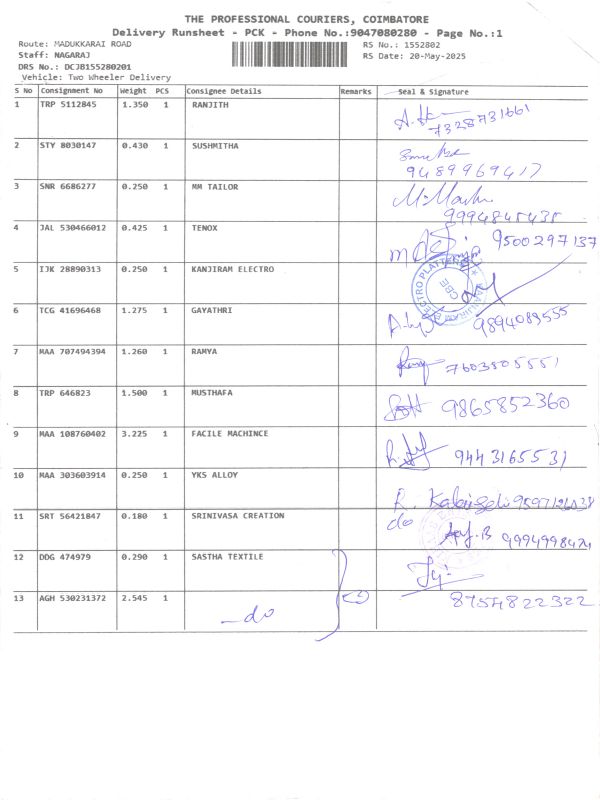 THE PROFESSIONAL COURIERS, COIMBATORE
Delivery Runsheet - PCK - Phone No.:9047080280 - Page No.:1
Route: MADUKKARAI ROAD RS No.: 1552802
Staff: NAGARAJ RS Date: 20-May-2025
DRS No.: DCJB155280201
Vehicle: Two Wheeler Delivery
S No Consignment No Weight PCS Consignee Details Remarks Seal & Signature
1 TRP 5112845 1.350 1 RANJITH
7328731661
2 STY 8030147 0.430 1 SUSHMITHA
9489969417
3 SNR 6686277 0.250 1 MM TAILOR
9994845435
4 JAL 530466012 0.425 1 TENOX 9500297137
5 IJK 28890313 0.250 1 KANJIRAM ELECTRO
ELECTRO PLATTERS CBE
6 TCG 41696468 1.275 1 GAYATHRI 9894089555
7 MAA 707494394 1.260 1 RAMYA 7603805551
8 TRP 646823 1.500 1 MUSTHAFA 9865852360
9 MAA 108760402 3.225 1 FACILE MACHINCE 9443165531
10 MAA 303603914 0.250 1 YKS ALLOY R.
11 SRT 56421847 0.180 1 SRINIVASA CREATION do
9994998424
12 DDG 474979 0.290 1 SASTHA TEXTILE
13 AGH 530231372 2.545 1 8754822322
do